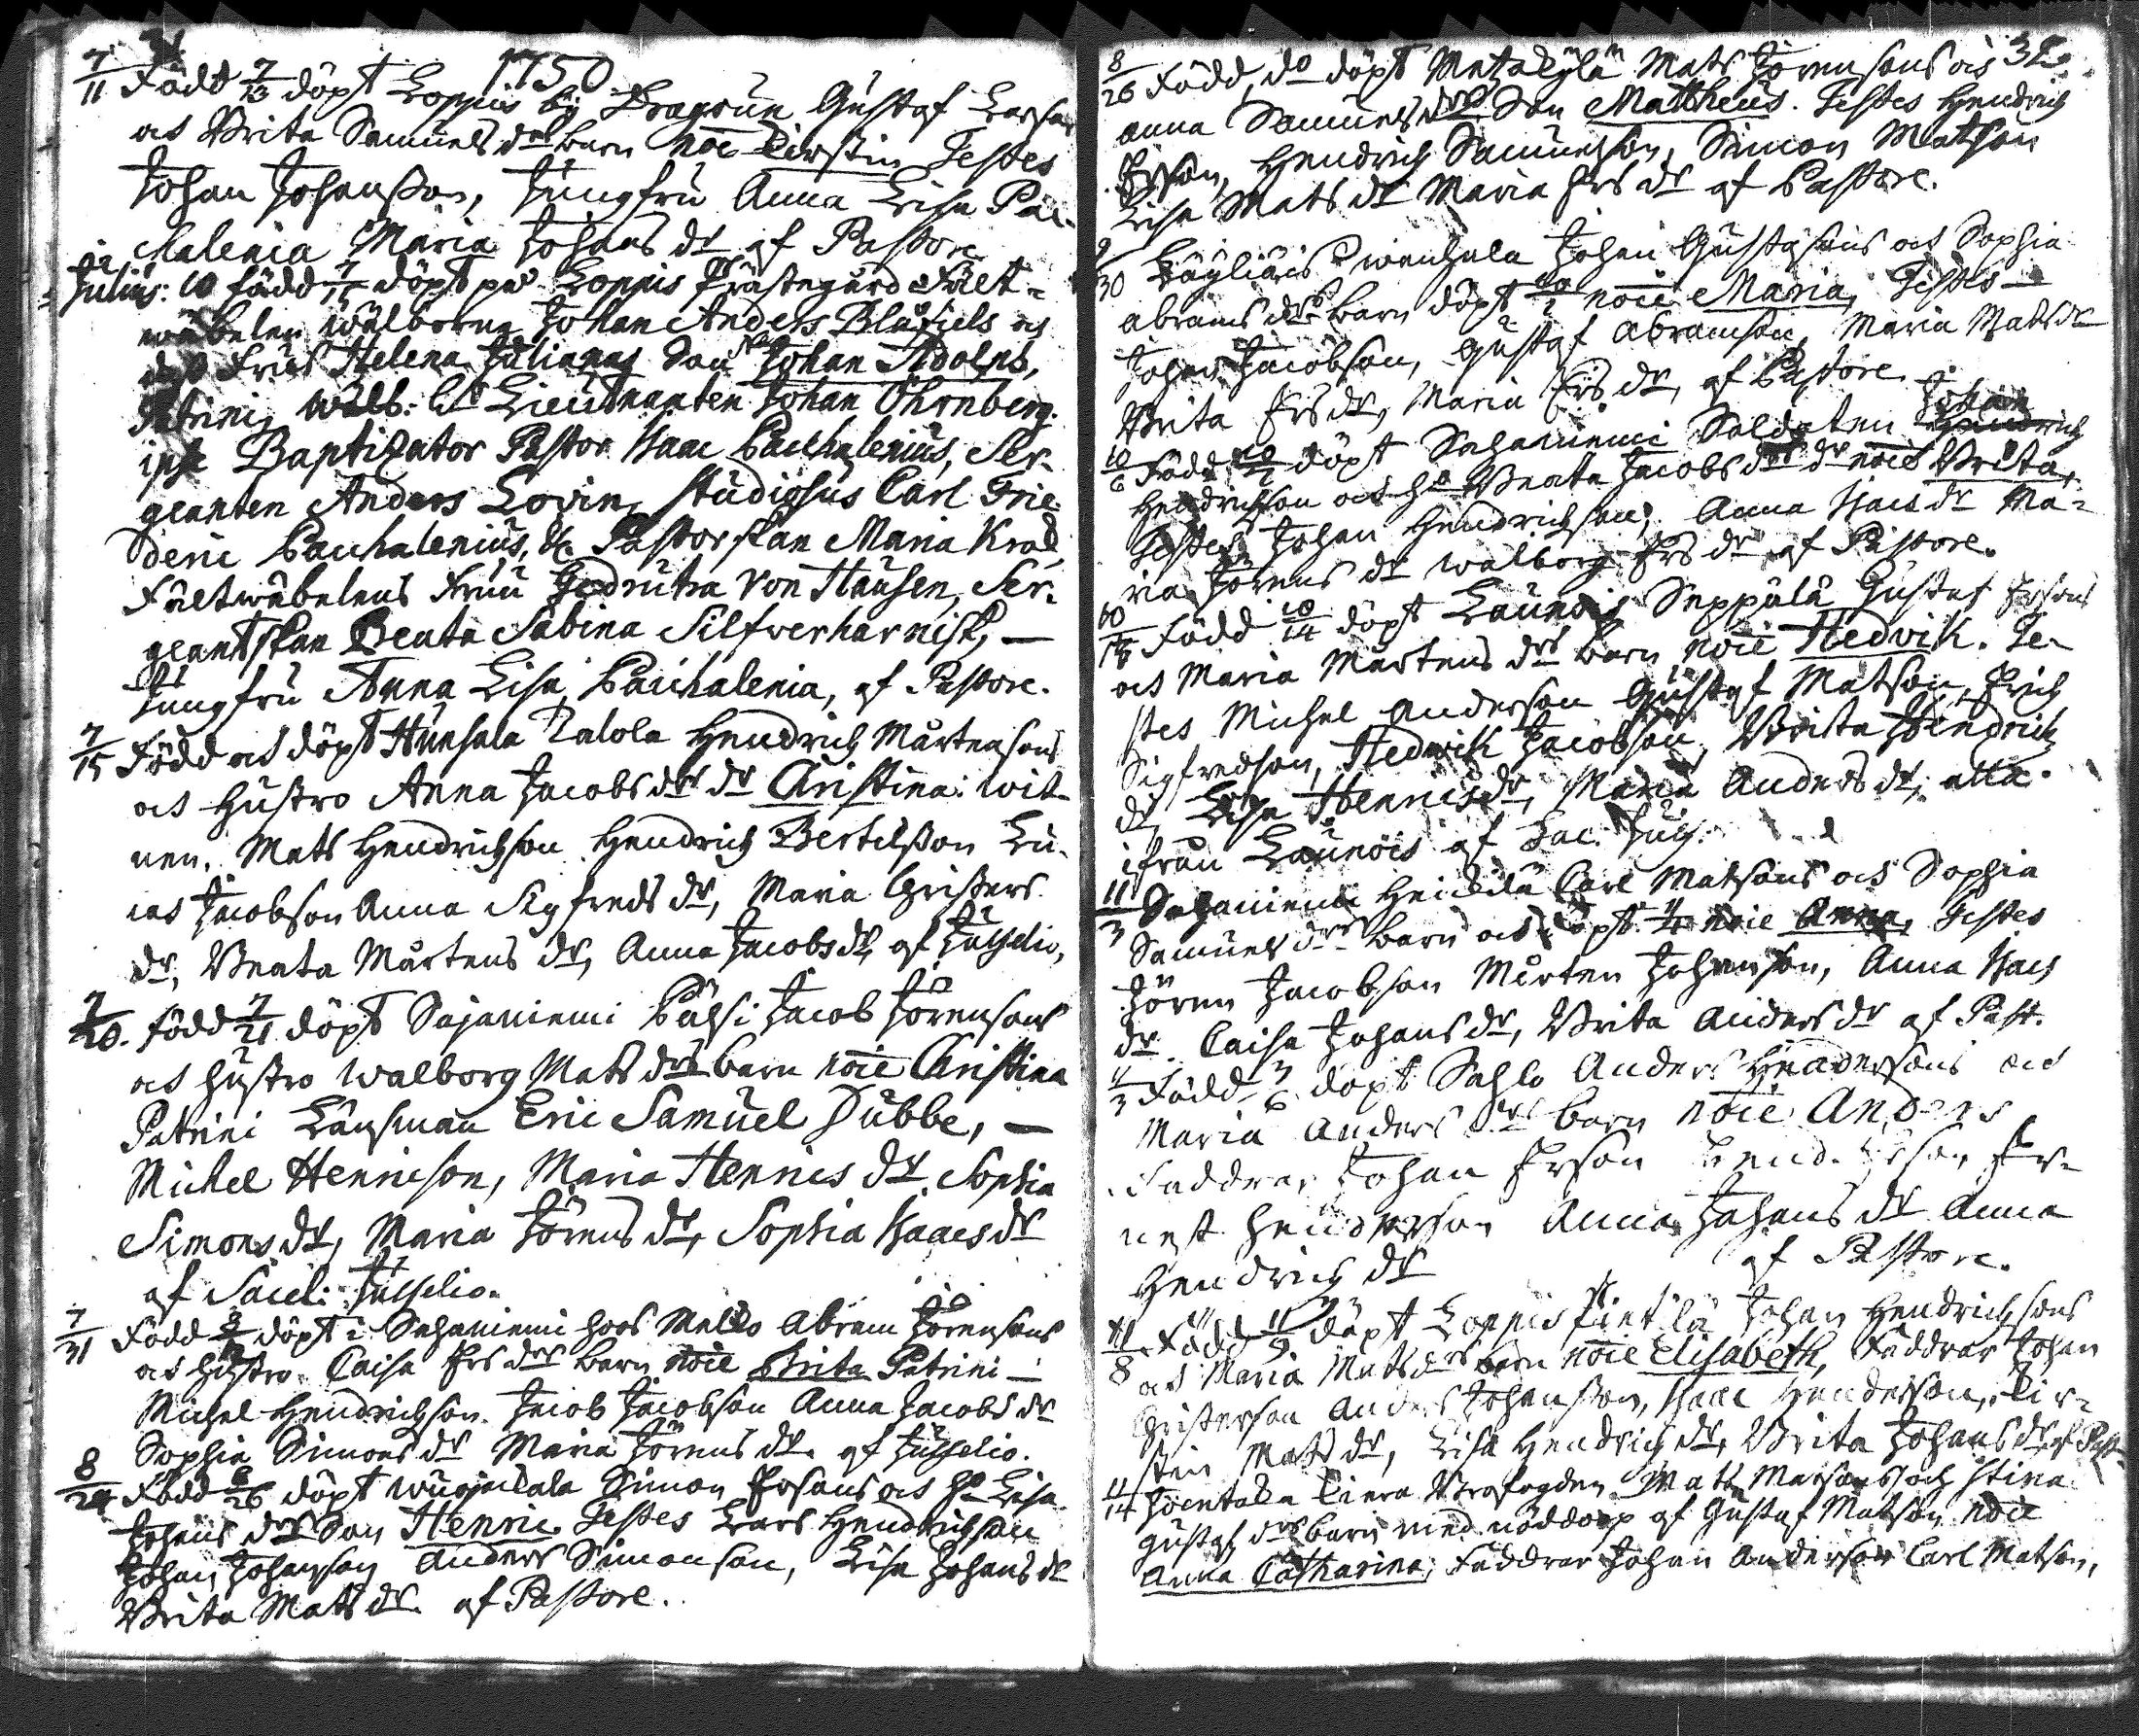 1750
7/11 Född 7/13 döpt Loppis by Dragoun Gustaf Larsons
och Brita Samuels drs barn noie Kirstin Testes
Johan Johansson, Jungfru Anna Lisa Pac-
chalenia Maria Johans dr af Pastore
Julius: 10 född 7/15 döpt på Loppis Prästegård Fält-
wäbelen Wälborne Johan Anders Blåfiels och
dess Frus Helena Julianas Son Johan Adolph,
Patrini, Wälb: hr Lieutnanten Johan Öhrnberg.
ipse Baptizator Pastor Isaac Pacchalenius, Ser-
geanten Anders Lovin, Studiosus Carl Frie-
deric Pacchalenius, &c. Pastorskan Maria Krok,
Fältwäbelens Fruu Gedrutha Von Hausen, Ser-
geantskan Beata Sabina Silfverharnisk, —
Jungfru Anna Lisa Pacchalenia, af Pastore.
7/15 Född och döpt Hunsala Talola Hendrich Mårtensons
och hustro Anna Jacobs drs dr Christina: wit-
nen. Mats Hendrichson Hendrich Bertilsson Lu-
cas Jacobson Anna Sigfreds dr, Maria Christers
dr, Beata Mårtens dr, Anna Jacobs dr, af Juselio,
7/20. Född 7/21 döpt Sajaniemi Pälsi Jacob Jörensons
och hustro Walborg Mats drs barn noie Christina
Patrini Länsman Eric Samuel Dubbe, —
Michel Henricson, Maria Henrics dr Sophia
Simons dr, Maria Jörens dr, Sophia Isaacs dr
af Sacel: Juselio.
7/31 Född döpt i Sajaniemi hoos Abram Jörensons
och hustro Caisa Ers drs barn noie Brita Patrini —
Michel Hendrichson Jacob Jacobson Anna Jacobs dr
Sophia Simons dr Maria Jörens dr af Juselio.
8/24 Född 8/26 döpt Simon Ersons och ho Lisa
Johans drs Son Henric. Testes Lars Hendrichson
Johan Johanson Anders Simonson, Lisa Johans dr
Brita Mats dr. af Pastore.
8/26 Född, do döpt Metzekylä Mats Jörensons och
Anna Samuels drs Son Mattheus. Testes Hendrich
Erson, Hendrich Samuelson, Simon Matson
Lisa Mats dr Maria Ers dr af Pastore.
9/30 Johan Gustafsons och Sophia
Abrams drs barn döpt noie Maria, Testes —
Johan Jacobson, Gustaf Abramson, Maria Mats dr
Brita Ers dr, Maria Ers dr, af Pastore.
10/6 Född döpt Sajaniemi Soldaten Johan
Hendrichson och ho Beata Jacobs drs dr noie Brita,
Testes Johan Hendrichson, Anna Isacs dr Ma-
ria Jörens dr Walborg Ers dr af Pastore.
Född 10/14 döpt Launois Seppälä Gustaf Ersons
och Maria Mårtens drs barn noie Hedvik. Te-
stes Michel Anderson Gustaf Matson, Erich
Sigfredson, Hedwik Jacobson, Brita Hendrichs
dr, Lisa Henrics dr, Maria Anders dr, alla
ifrån Launois af Sac. Jus.
11/3 Sajaniemi Heickilä Carl Matsons och Sophia
Samuels drs barn och döpt noie Anna, Testes
Jören Jacobson Mårten Johanson, Anna Isacs
dr. Caisa Johans dr, Brita Anders dr af Past.
Född döpt Sahlo Anders Hendersons och
Maria Anders drs barn noie Anders
Faddrar Johan Erson Hend. Erson Er-
nest Henderson Anna Johans dr Anna
Hendrichs dr af Pastore.
11/8 Född 11/9 döpt Loppis Johan Hendrichsons
och Maria Mats drs barn noie Elisabeth, Faddrar Johan
Christerson Anders Johanson, Isaac Henderson, Kir-
stin Mats dr, Lisa Hendrichs dr, Brita Johans dr, af Past.
11/14 Mats Matsons och Stina
Gustafs drs barn med nöddop af Gustaf Matson noie
Anna Catharina, Faddrar Johan Anderson Carl Matson,